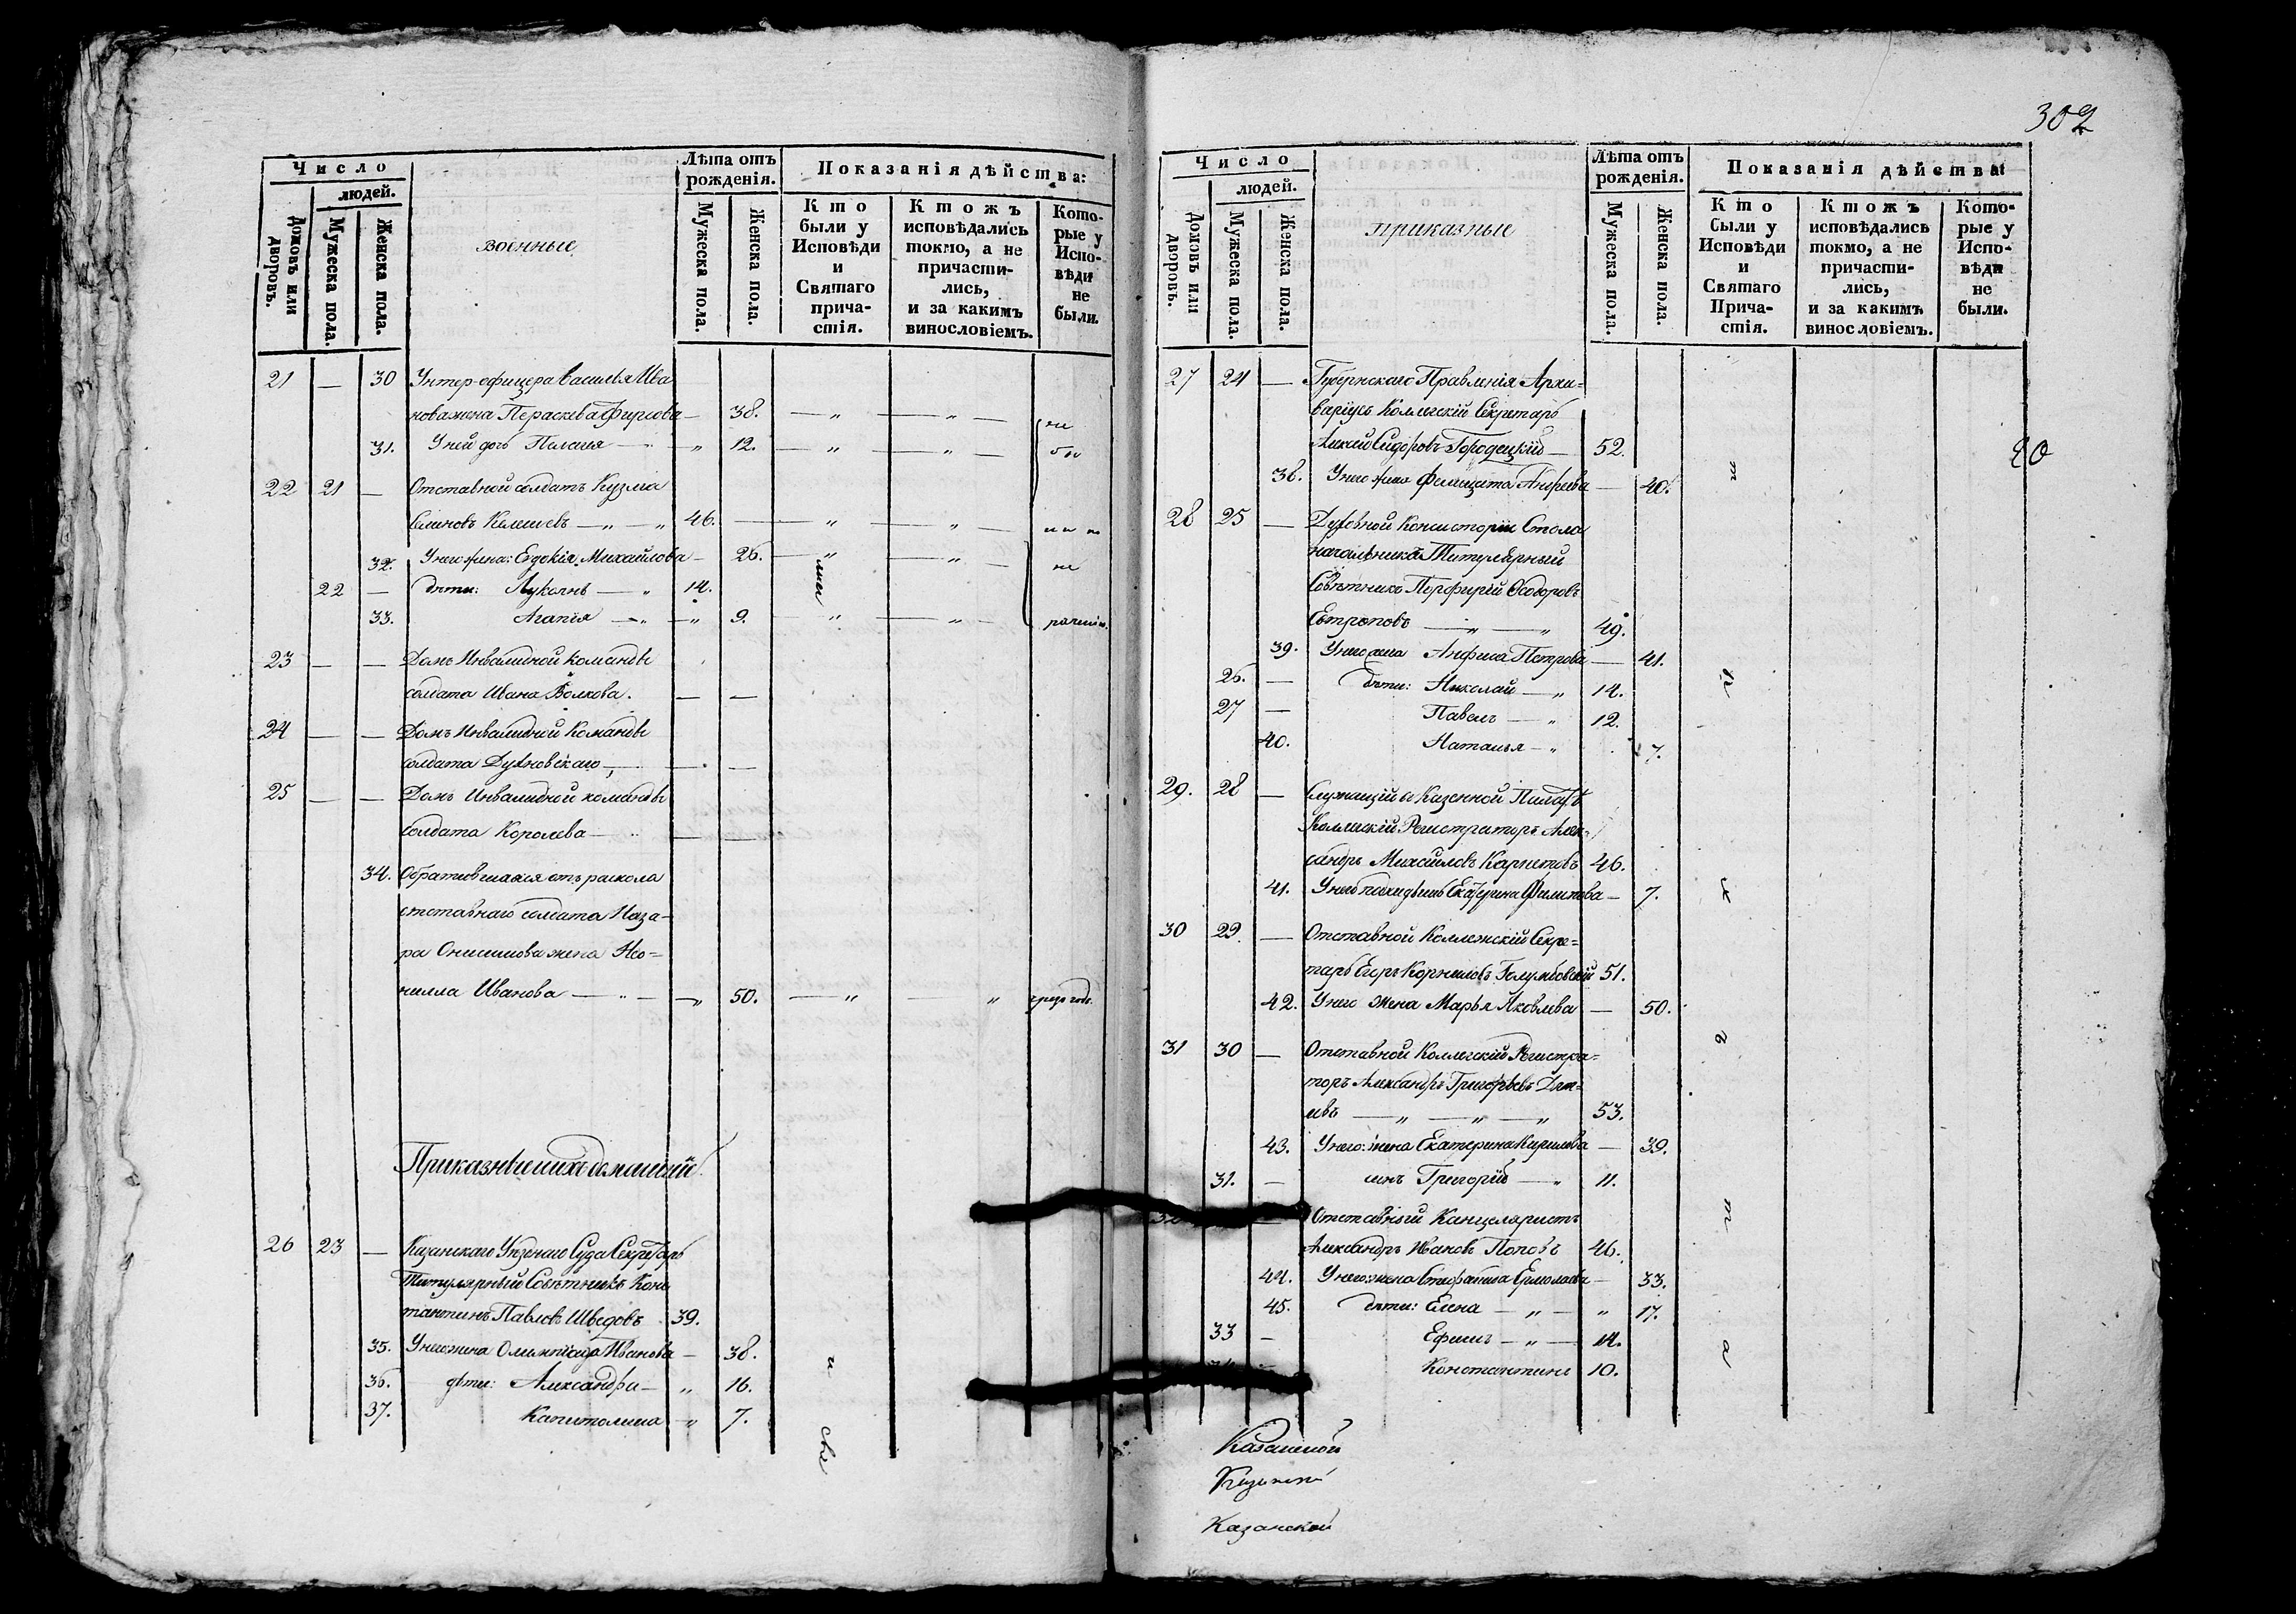 302
Число
людей.
Домовъ или дворовъ.
Мужеска пола.
Женска пола.
военные
Лѣта отъ рожденія.
Мужеска пола.
Женска пола.
Показанія дѣйства:
Кто были у Исповѣди и Святаго причастія.
Ктожъ исповѣдались токмо, а не причастились, и за какимъ винословіемъ.
Которые у Исповѣди не были.
21 — 30 Унтер-офицера Василья Ива
нова жена Пераскева Фирсова — 38. — „ — „ —
31. У ней дочь Пелагея — „ 12. — „ — „ —
22 21 — Отставной солдатъ Кузма
46. — „ — „ —
32. У него жена: Евдокія Михайлова — 26. — „ — „ —
22 — дѣти: Лукіянъ — „ 14.
33. Агапія — „ — „ 9. — „ — „ —
23 — — Домъ Инвалидной команды
солдата Ивана Волкова. — —
24 — — Домъ Инвалидной Команды
солдата Духновскаго, — —
25 — — Домъ Инвалидной команды
солдата Королева — — —
34. Обратившаяся отъ раскола
отставнаго солдата Наза-
ра Онисимова жена Нео=
нилла Иванова — „ — — „ 50. — „ — „
Приказные и ихъ домашніе
26 23 — Казанскаго Уѣзднаго Суда Секретарь
Титулярный Совѣтникъ Конс
тантинъ Павловъ Шведовъ 39.
35. У него жена Олимпіада Иванова — 38.
36. дѣти: Александра — „ 16.
37. Капитолина — „ 7.
Число
людей.
Домовъ или дворовъ.
Мужеска пола.
Женска пола.
приказные
Лѣта отъ рожденія.
Мужеска пола.
Женска пола.
Показанія дѣйства:
Кто были у Исповѣди и Святаго Причастія.
Ктожъ исповѣдались токмо, а не причастились, и за какимъ винословіемъ.
Которые у Исповѣди не были.
27 24 — Губернскаго Правленія Архи=
варіусъ Коллегскій Секретарь
Алексѣй Сидоровъ Городецкій — 52.
38. У него жена Фелицата Андреева — 40.
28 25 — Духовной Консисторіи Стола
начальникъ Титулярный
Совѣтникъ Порфирій Ѳеодоровъ
Евтроповъ — „ — „ 49.
39. У него жена Анфиса Петрова — 41.
26. — дѣти: Николай — „ 14.
27 — Павелъ — „ 12.
40. Наталья — „ 7.
29. 28 — Служащій въ Казенной Палатѣ
Коллегскій Регистраторъ Алек=
сандръ Михайловъ 46.
41. Екатерина Филипова — 7.
30 29. — Отставной Коллежскій Секре=
тарь Егоръ Корниловъ Голумбовскій 51.
42. У него Жена Марья Яковлева — 50.
31 30 — Отставной Коллегскій Регистра=
торъ Александръ Григорьевъ
— „ — „ — „ 53.
43. У него: жена Екатерина Кирилова — 39.
31. — сынъ Григорій — „ 11.
— Отставный Канцеляристъ
Александръ Ивановъ Поповъ 46.
44. У него жена Стефанида Ермолаева — 33.
45. дѣти: Елена — „ — „ 17.
33 — Ефимъ — „ — 14.
Константинъ 10.
Казанской
Казанской